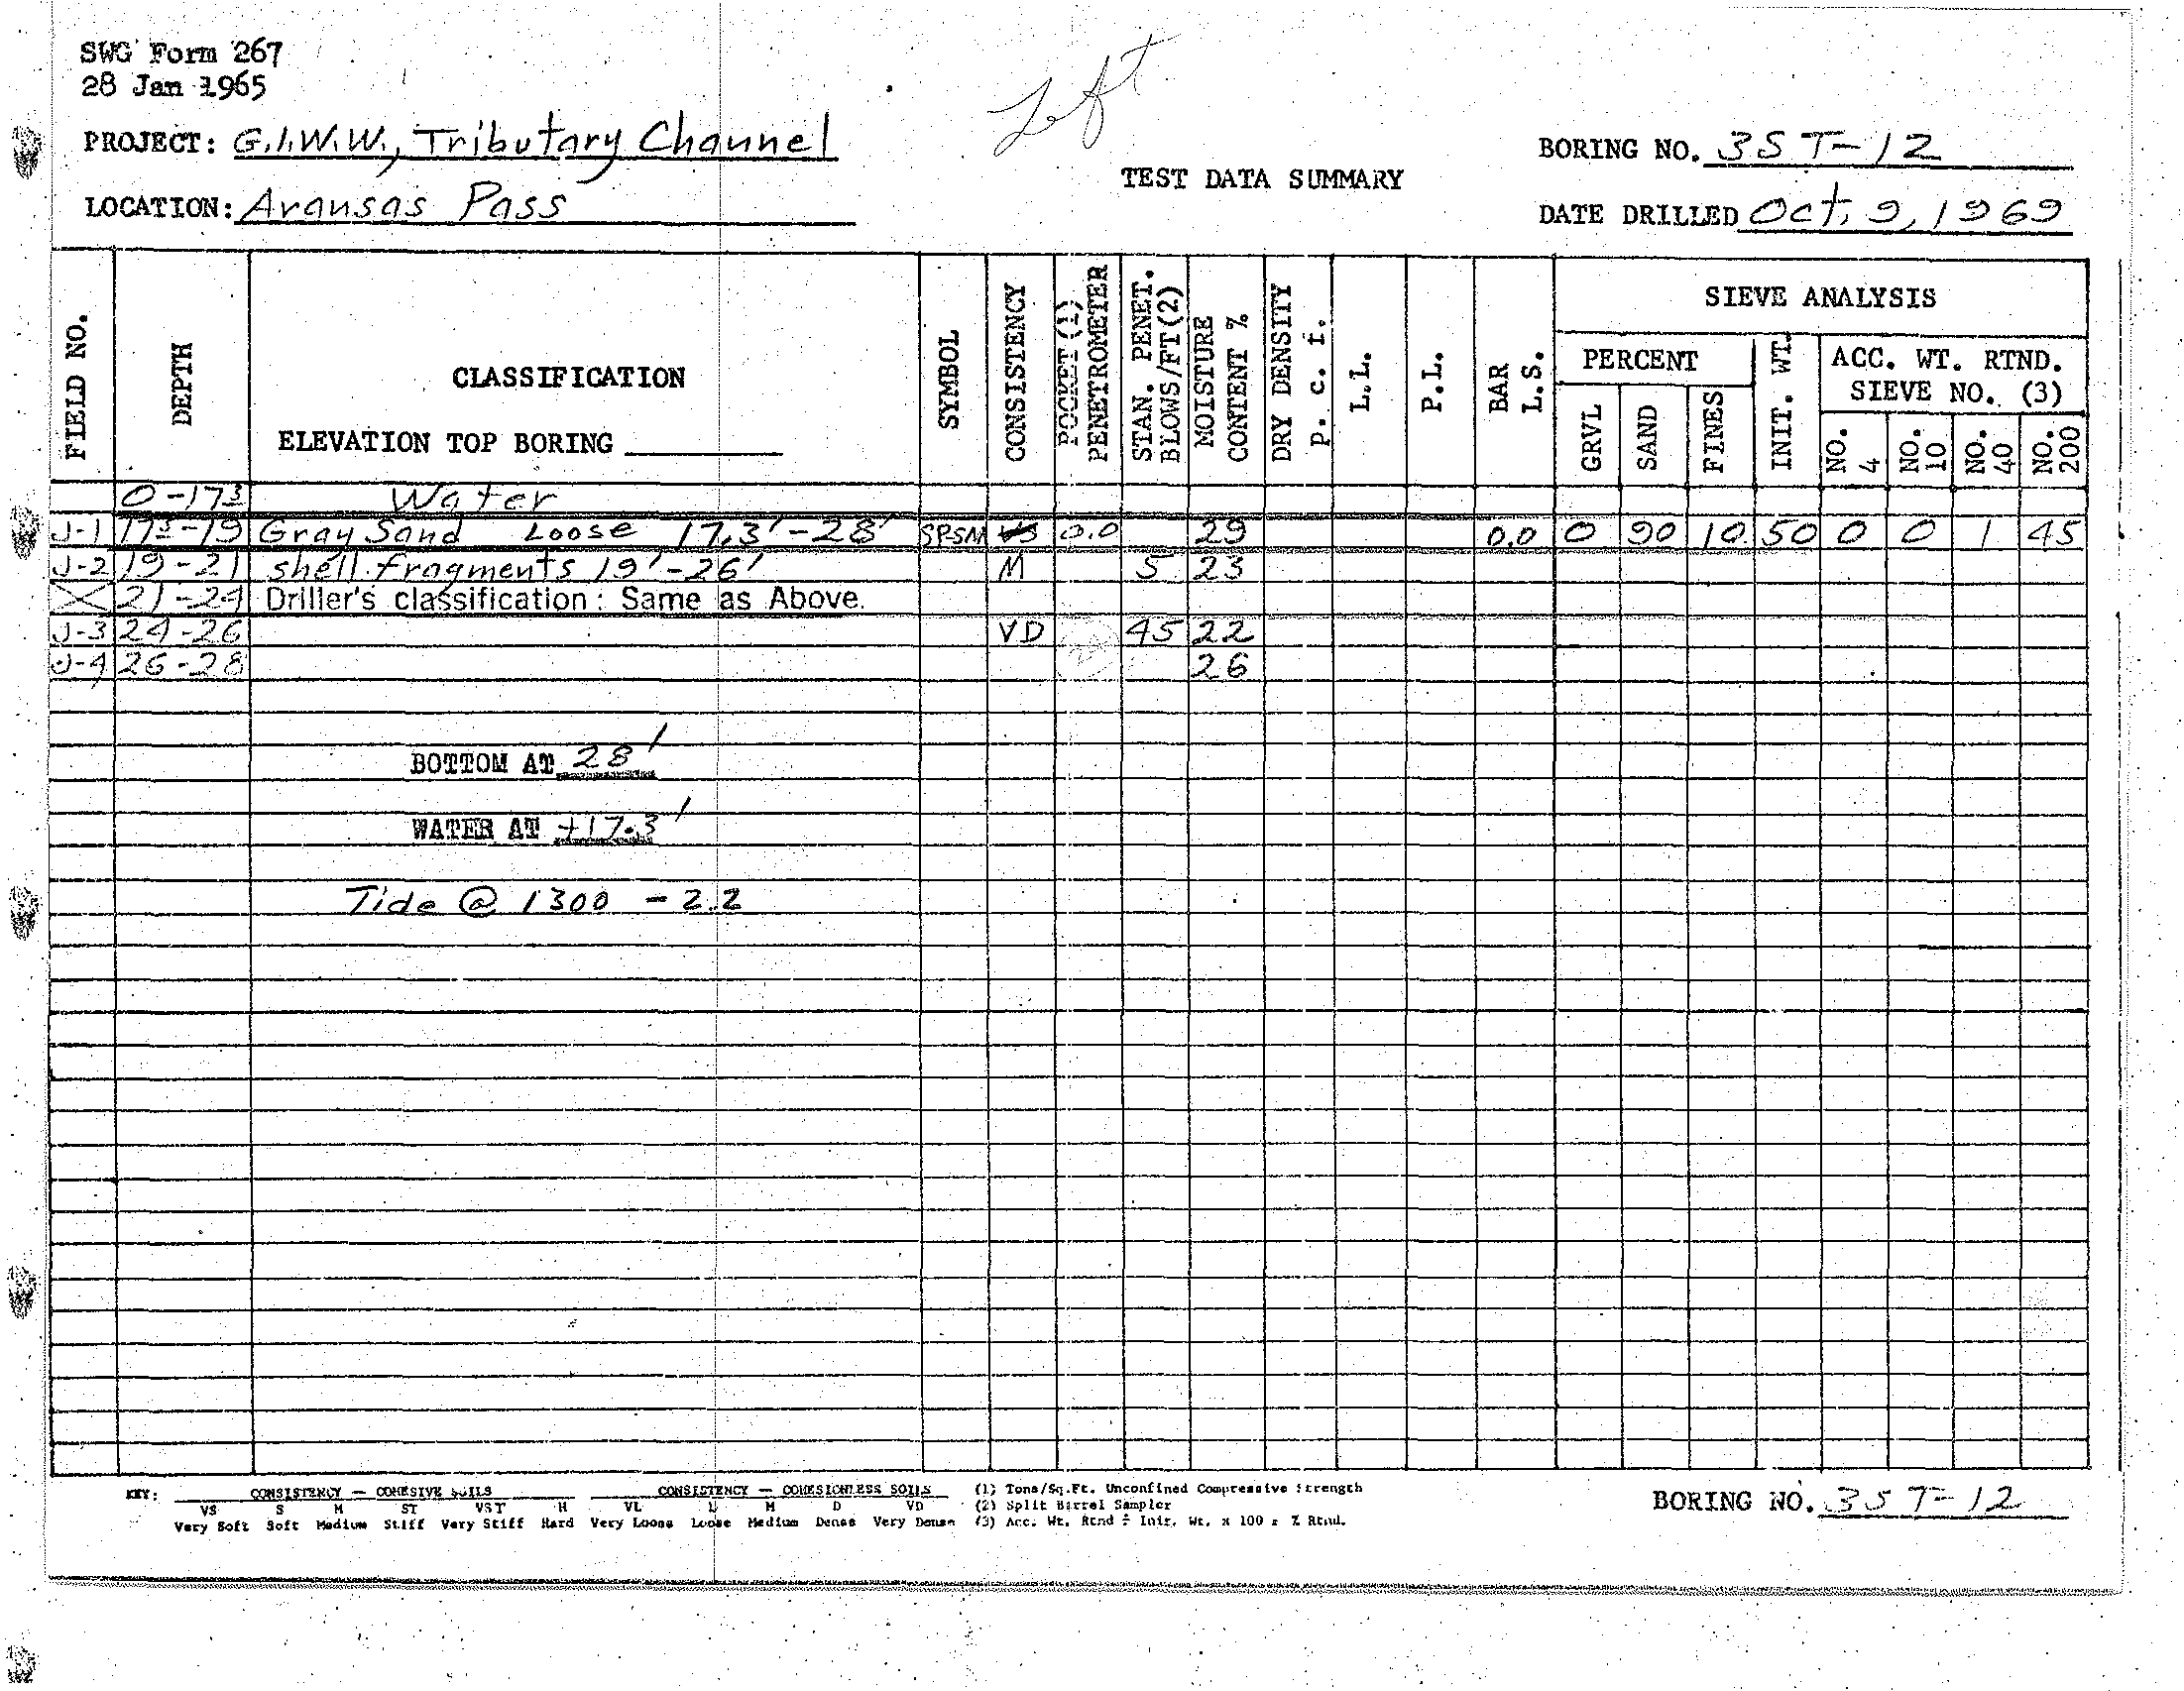 SWG Form 267
28 Jan 1965
Left
PROJECT: G.I.W.W., Tributary Channel
BORING NO. 3ST-12
TEST DATA SUMMARY
LOCATION: Aransas Pass
DATE DRILLED Oct. 9, 1969
FIELD NO.
DEPTH
CLASSIFICATION
ELEVATION TOP BORING
SYMBOL
CONSISTENCY
POCKET (1) PENETROMETER
STAN. PENET. BLOWS/FT (2)
MOISTURE CONTENT %
DRY DENSITY P. c. f.
L.L.
P.L.
BAR L.S.
SIEVE ANALYSIS
PERCENT
GRVL
SAND
FINES
INIT. WT.
ACC. WT. RTND.
SIEVE NO. (3)
NO. 4
NO. 10
NO. 40
NO. 200
0-17.3 Water
J-1 17.3-19 Gray Sand Loose 17.3'-28' SPSM VS 0.0 29 0.0 0 90 10 50 0 0 1 45
J-2 19-21 shell fragments 19'-26' M 5 23
21-24 Driller's classification: Same as Above.
J-3 24-26 VD 45 22
J-4 26-28 26
BOTTOM AT 28'
WATER AT +17.3'
Tide @ 1300 - 2.2
KEY: CONSISTENCY — COHESIVE SOILS CONSISTENCY — COHESIONLESS SOILS (1) Tons/Sq.Ft. Unconfined Compressive Strength
VS S M ST VST H VL L M D VD (2) Split Barrel Sampler
Very Soft Soft Medium Stiff Very Stiff Hard Very Loose Loose Medium Dense Very Dense (3) Acc. Wt. Rtnd ÷ Init. Wt. x 100 = % Rtnd.
BORING NO. 3ST-12